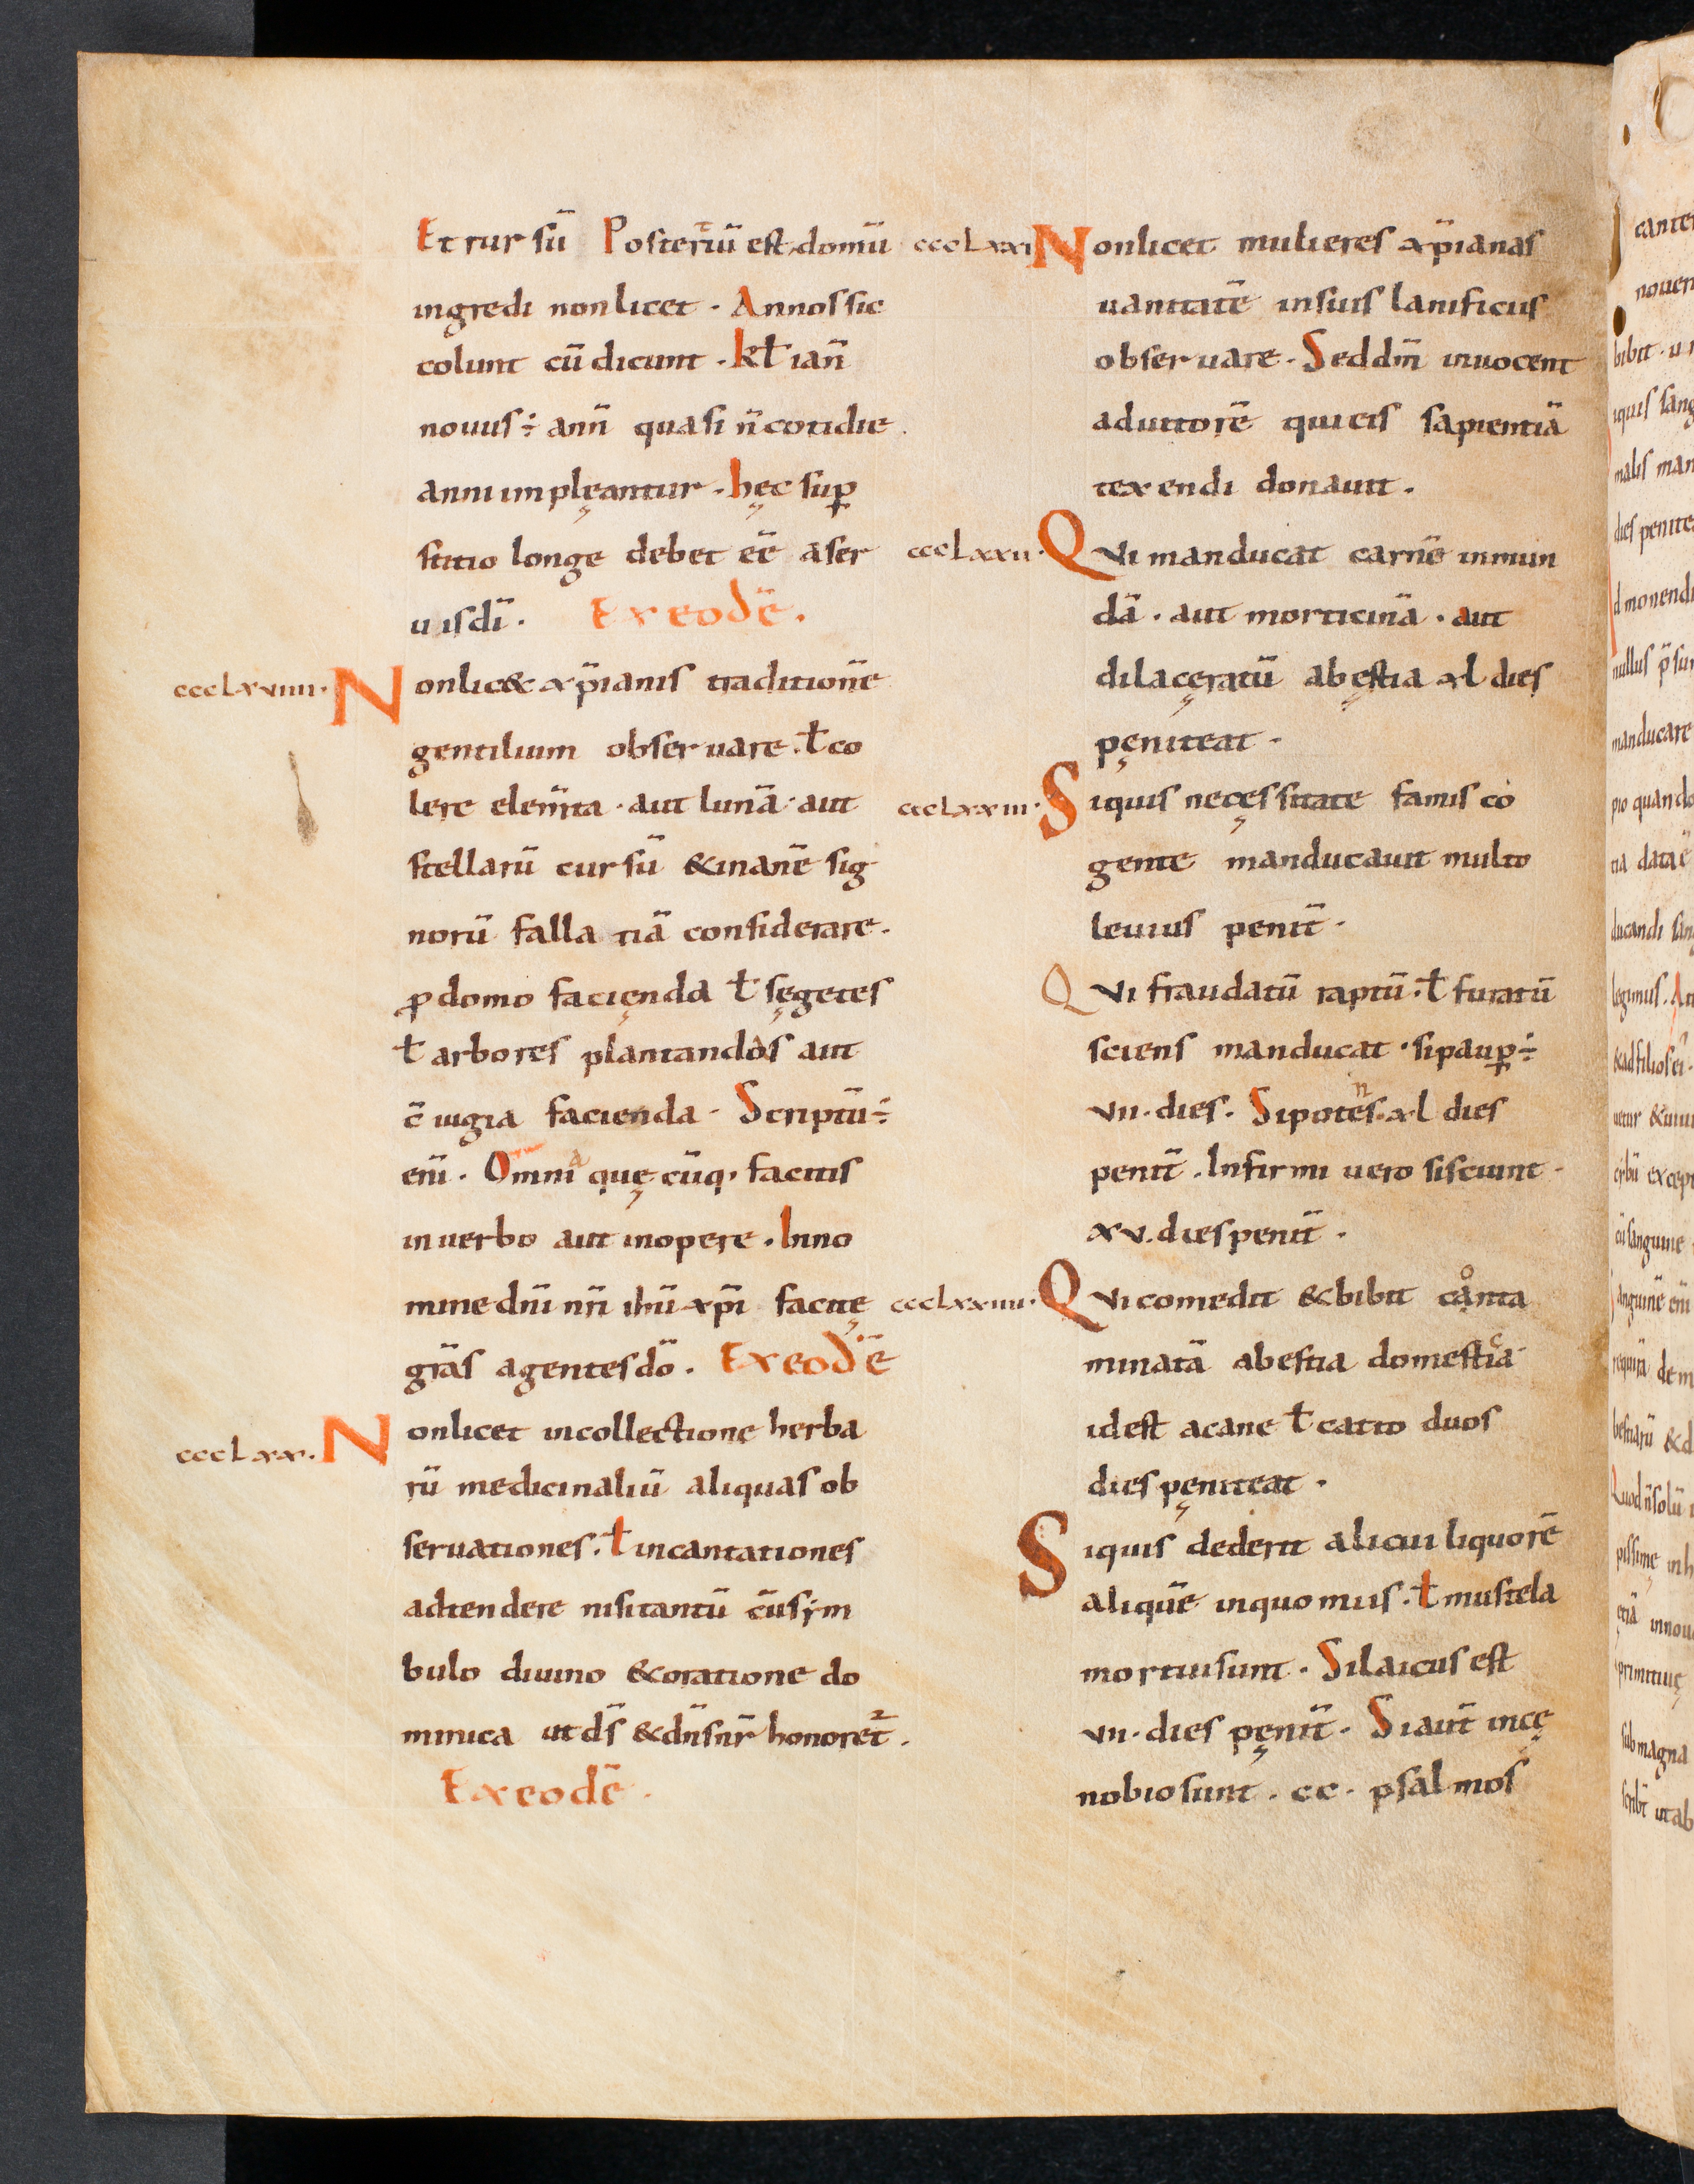 Et rursū Posteriū est domū
ingredi non licet · Annos sic
colunt cū dicunt · kł ian̄
nouus ÷ ann̄ quasi n̄ cotidie
anni impleantur · hęc sup̱
stitio longe debet eē a ser
uis dī · Ex eodē ·
ccclxviiii · Non lic& xp̄ianis traditionē
gentilium obseruare · ł co
lere elem̄ta · aut lunā · aut
stellarū cursū & inanē sig
norū fallatiā considerare ·
ꝓ domo facięnda ł sęgetes
ł arbores plantandos aut
c̄iugia facienda · Scriptū ÷
eni̅ · Omnia quę cūq; facitis
in uerbo aut in opere · In no
mine dn̄i nr̄i ihū xp̄i facitę
gr̄as agentes dō · Ex eodē
ccclxx · Non licet in collectione herba
rū medicinaliū aliquas ob
seruationes · ł incantationes
adtendere nisi tantū cū sẏm
bulo diuino & oratione do
minica ut ds̄ & dn̄s nr̄ honoret̄ ·
Ex eodē ·
ccclxxi Non licet mulieres xp̄ianas
uanitatē in suis lanificiis
obseruare · Sed dm̄ inuocent
adiutorē qui eis sapientiā
texendi donauit ·
ccclxxii · Qui manducat carnē inmun
dā · aut morticinā · aut
dilacęratū a bęstia xl dies
pęniteat ·
ccclxxiii · Si quis necęssitate famis co
gente manducauit multo
leuius penit̄ ·
Qui fraudatū raptū · ł furatū
sciens manducat · si paup̱ ÷
vii · dies · Si potens · xl dies
penit̄ · Infirmi uero si sciunt ·
xv · dies penit̄ ·
ccclxxiiii · Qui comedit & bibit conta
minatā a bestia domestica
id est a cane ł catto duos
dies pęniteat ·
Si quis dederit alicui liquorē
aliquē in quo mus · ł mustela
mortui sunt · Si laicus est
vii · dies pęnit̄ · Si aut̄ in cę
nobio sunt · cc · psalmos